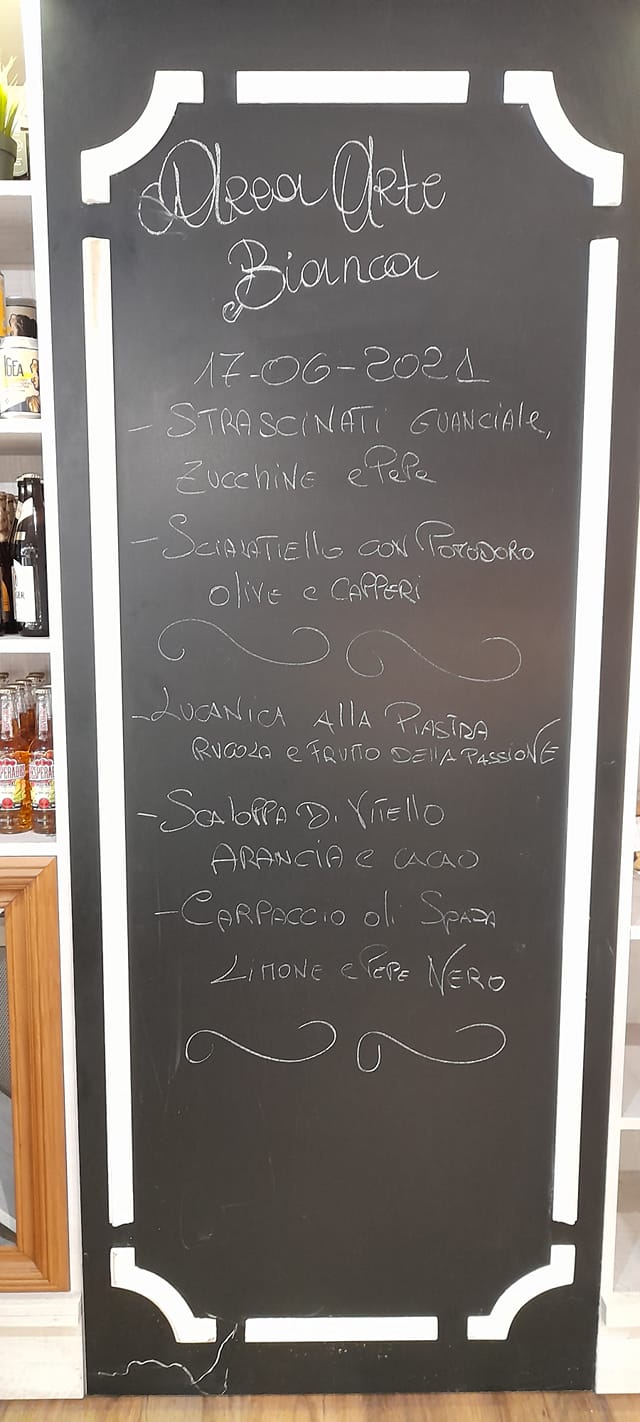 Area Arte
Bianca
17-06-2021
- STRASCINATI GUANCIALE,
ZUCCHINE e PEPE
- SCIALATIELLO CON POMODORO
OLIVE e CAPPERI
- LUCANICA ALLA PIASTRA
RUCOLA e FRUTTO DELLA PASSIONE
- SCALOPPA DI VITELLO
ARANCIA e CACAO
- CARPACCIO di SPADA
LIMONE e PEPE NERO
IGEA